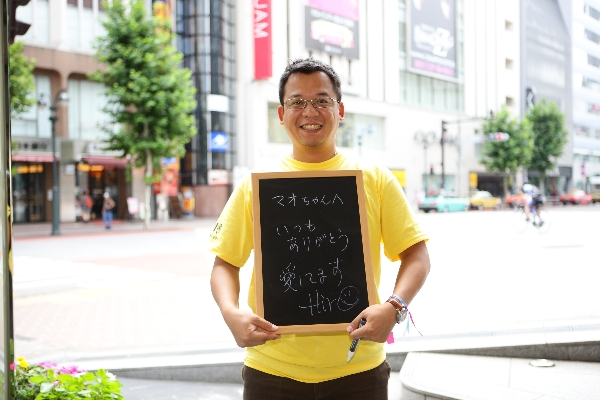 マオちゃんへ
いつも
ありがとう
愛してます
Hiro
JAM